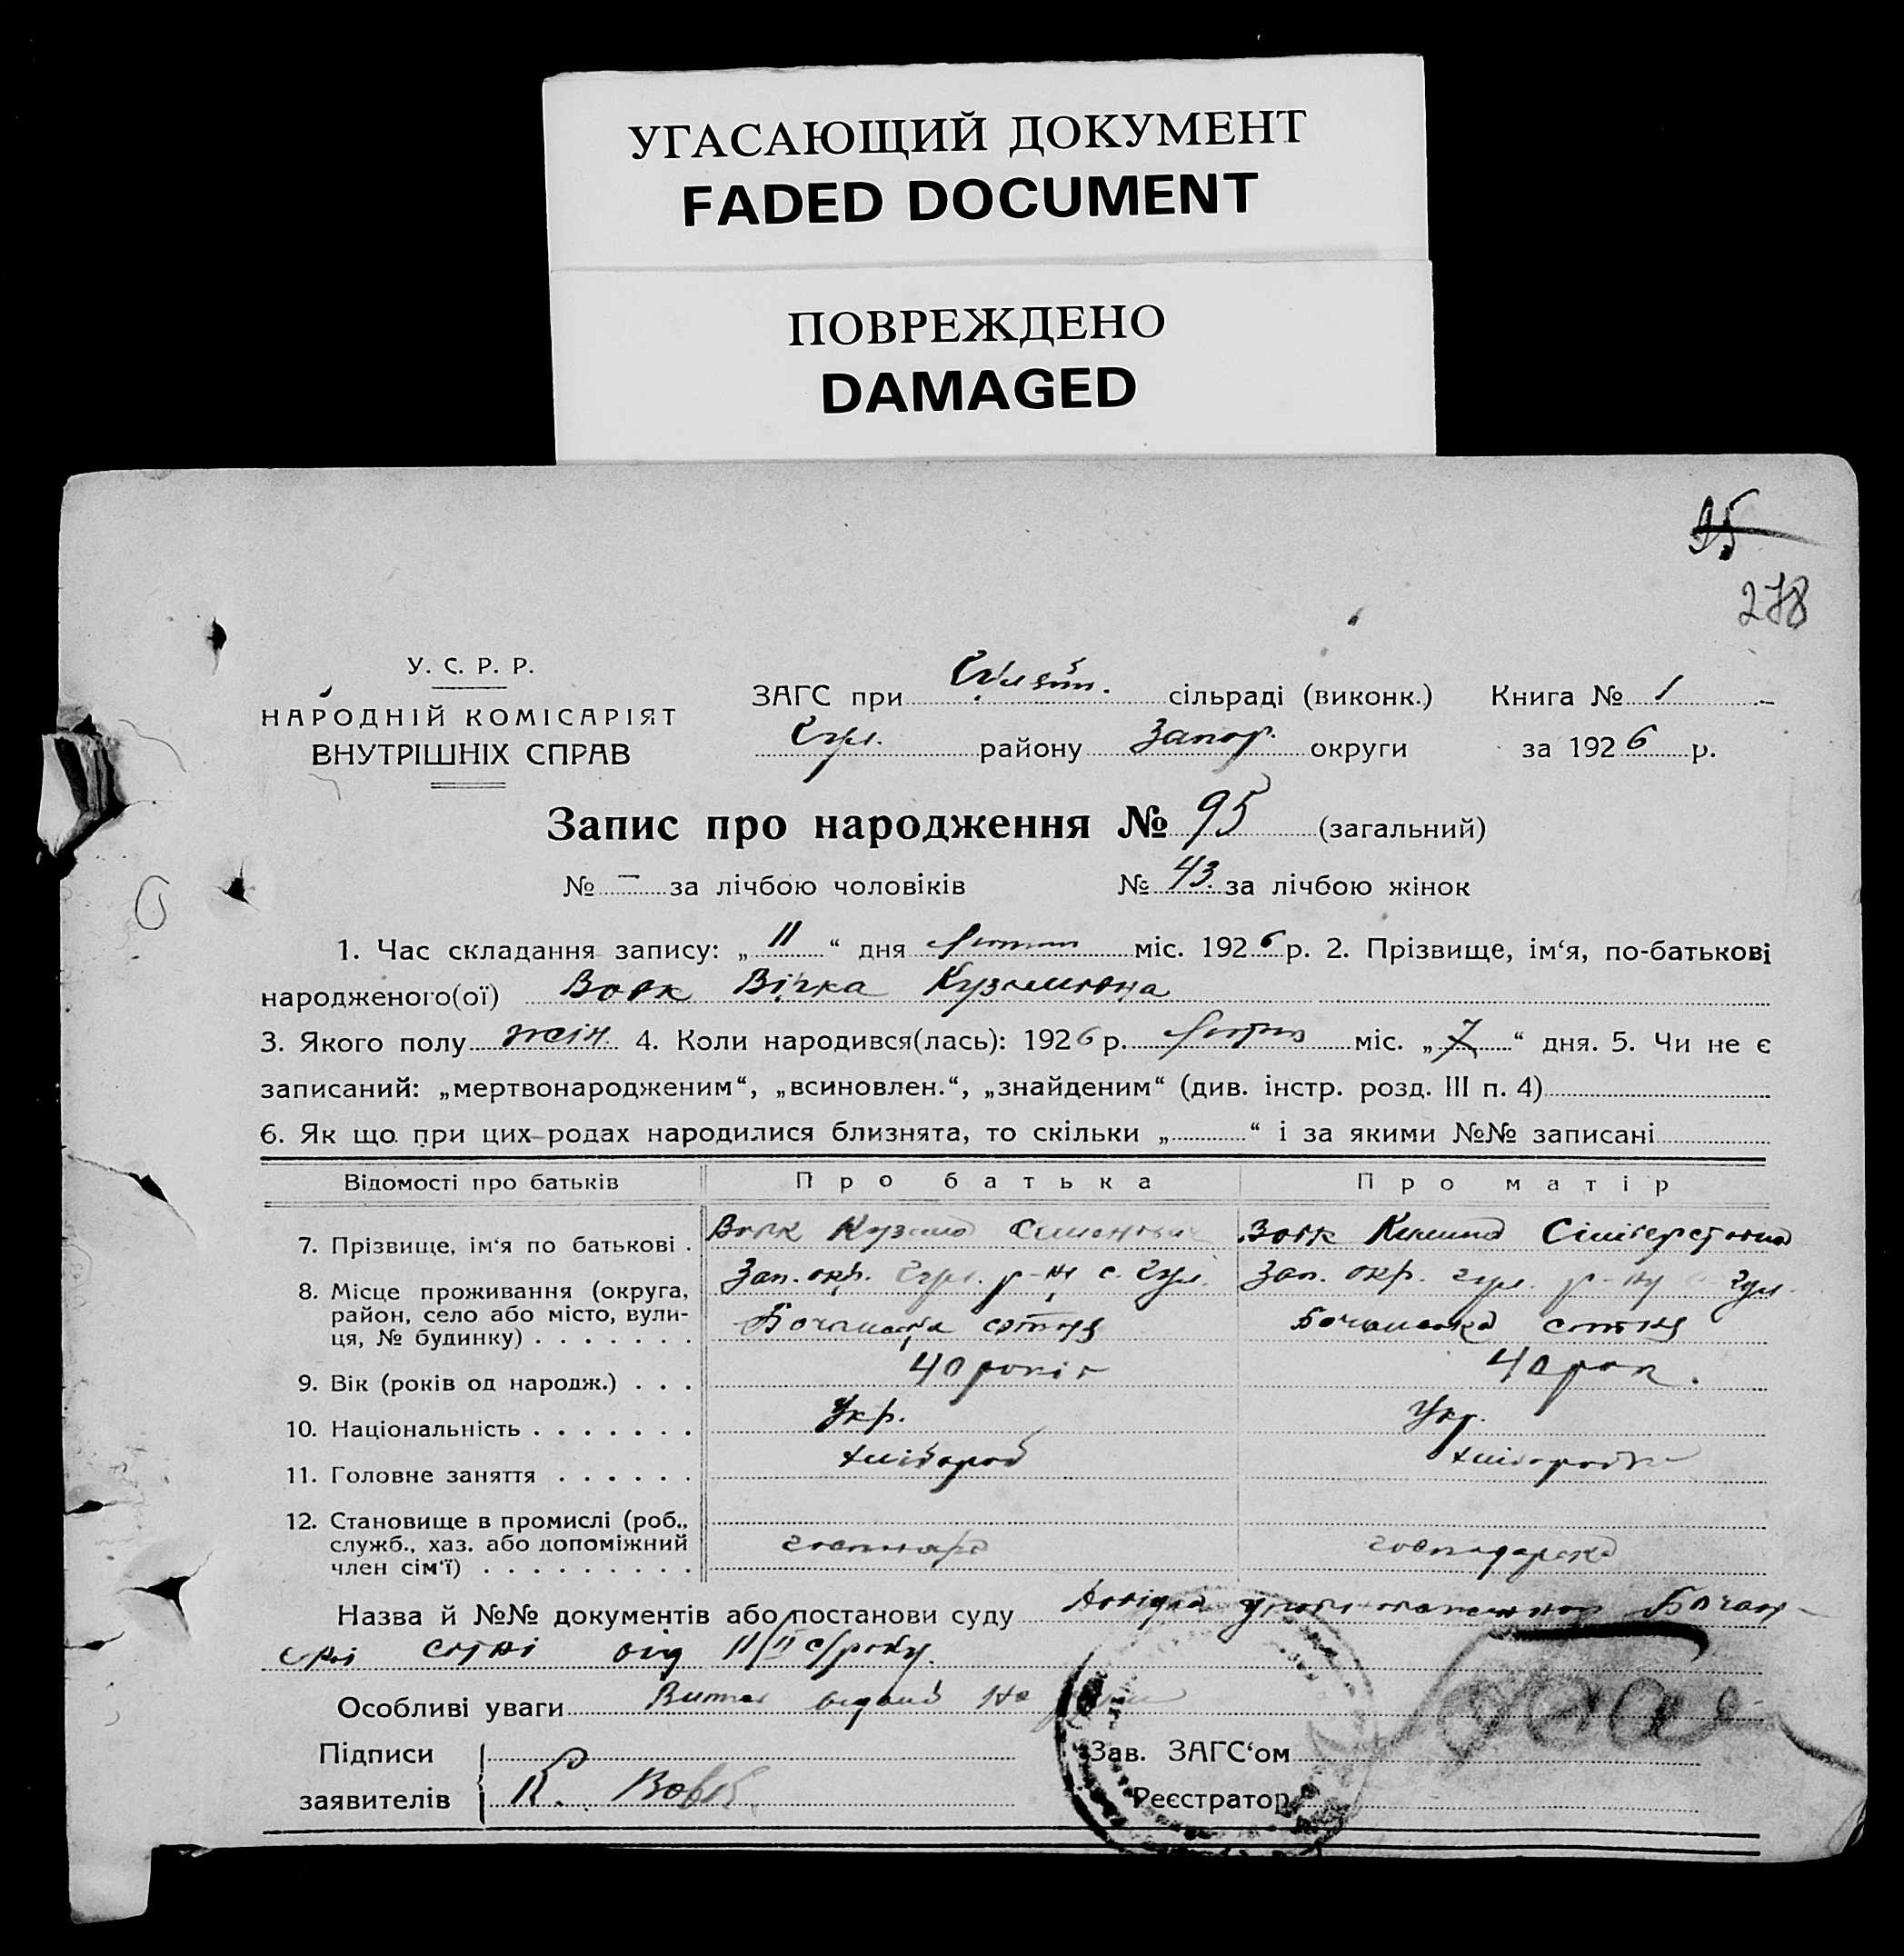 УГАСАЮЩИЙ ДОКУМЕНТ
FADED DOCUMENT
ПОВРЕЖДЕНО
DAMAGED
95
278
У. С. Р. Р.
НАРОДНІЙ КОМІСАРІЯТ
ВНУТРІШНІХ СПРАВ
ЗАГС при сільраді (виконк.) Книга № 1
Гул. району Запор. округи за 1926 р.
Запис про народження № 95 (загальний)
№ – за лічбою чоловіків № 43. за лічбою жінок
1. Час складання запису: „11“ дня лютого міс. 1926 р. 2. Прізвище, ім‘я, по-батькові
народженого(ої) Вовк Вірка Кузьмовна
3. Якого полу жін. 4. Коли народився(лась): 1926 р. лютого міс. „7“ дня. 5. Чи не є
записаний: „мертвонародженим“, „всиновлен.“, „знайденим“ (див. інстр. розд. III п. 4)
6. Як що при цих родах народилися близнята, то скільки „ “ і за якими №№ записані
Відомості про батьків Про батька Про матір
7. Прізвище, ім‘я по батькові . Вовк Кузьма Семенович Вовк
8. Місце проживання (округа, Зап. окр. Гул. р-ну с. Гул. Зап. окр. Гул. р-ну с. Гул.
район, село або місто, вули-
ця, № будинку) . . . . . . . сотня сотня
9. Вік (років од народж.) . . . 40 років 40 рок.
10. Національність . . . . . . . Укр. Укр.
11. Головне заняття . . . . . . хлібороб хліборобка
12. Становище в промислі (роб.,
служб., хаз. або допоміжний господар господарка
член сім‘ї) . . . . . . . . .
Назва й №№ документів або постанови суду Довідка
сотні від 11/II с/року.
Особливі уваги Витяг виданий на руки
Підписи Зав. ЗАГС‘ом
заявителів К. Вовк Реєстратор